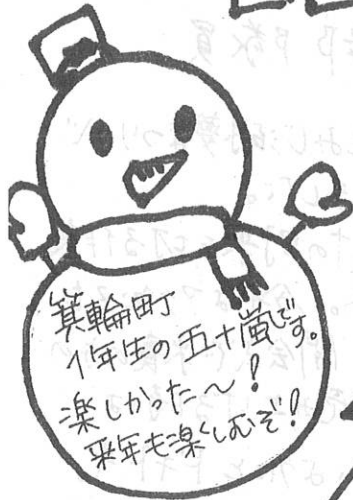 箕輪町
1年生の五十嵐です。
楽しかった～！
来年も楽しむぞ！